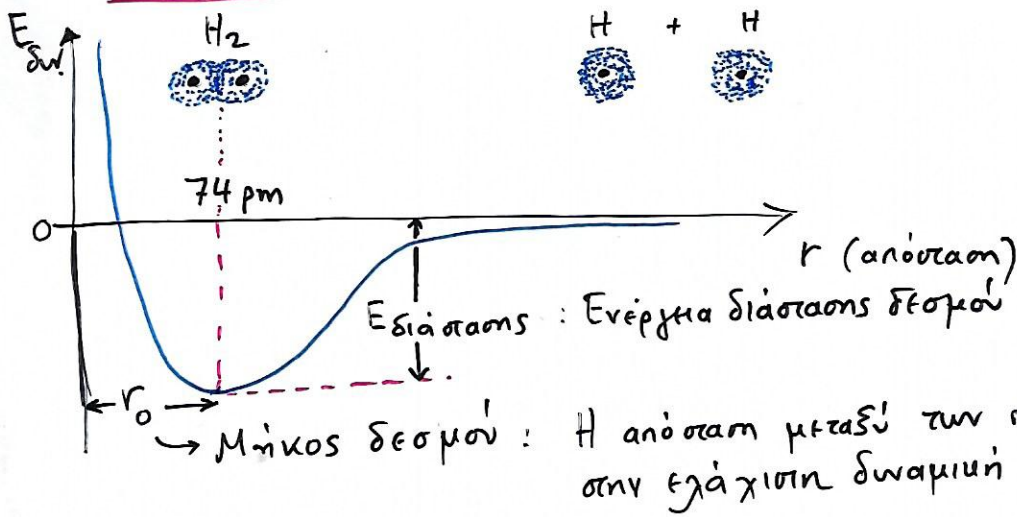 Eδυν.
H2
H + H
74 pm
0
r (απόσταση)
Eδιάστασης : Ενέργεια διάστασης δεσμού
r0
Μήκος δεσμού : Η απόσταση μεταξύ των
στην ελάχιστη δυναμική